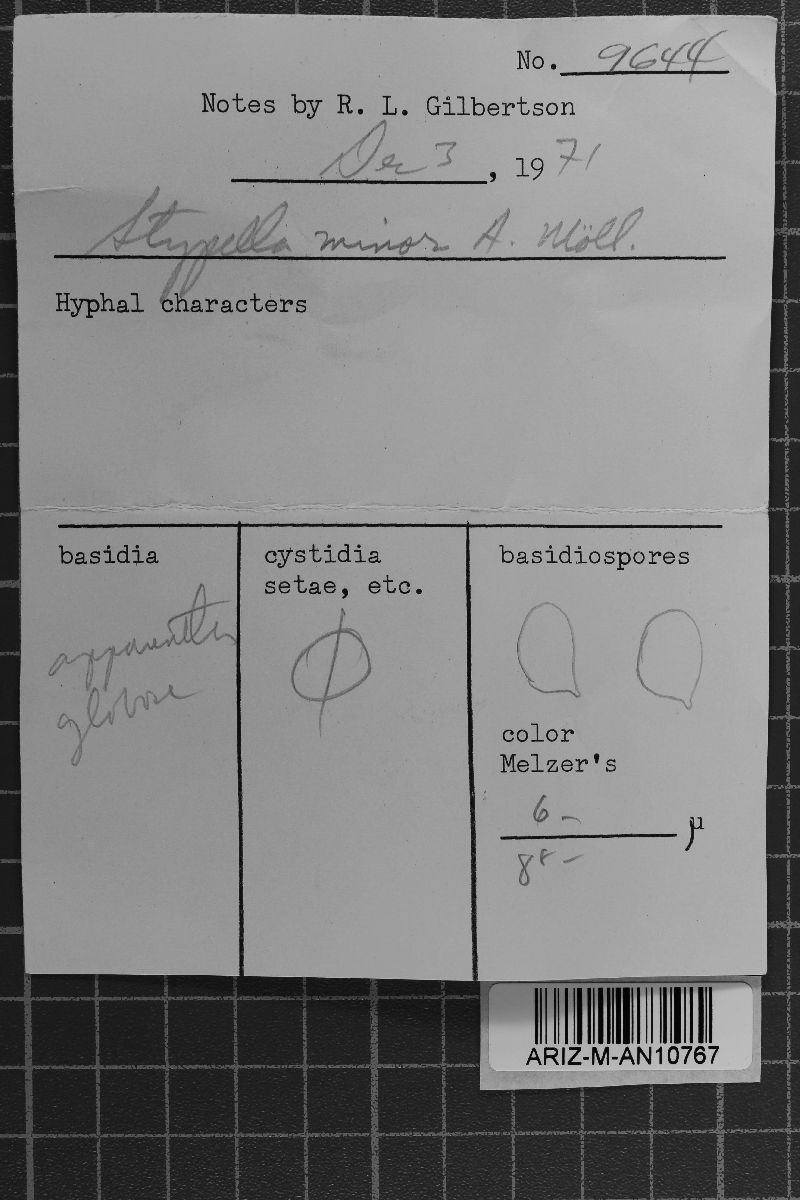 No. 9644
Notes by R. L. Gilbertson
Dec 3, 1971
Stypella minor A. Möll.
Hyphal characters
basidia
apparently
globose
cystidia
setae, etc.
basidiospores
color
Melzer's
6 –
µ
ARIZ-M-AN10767